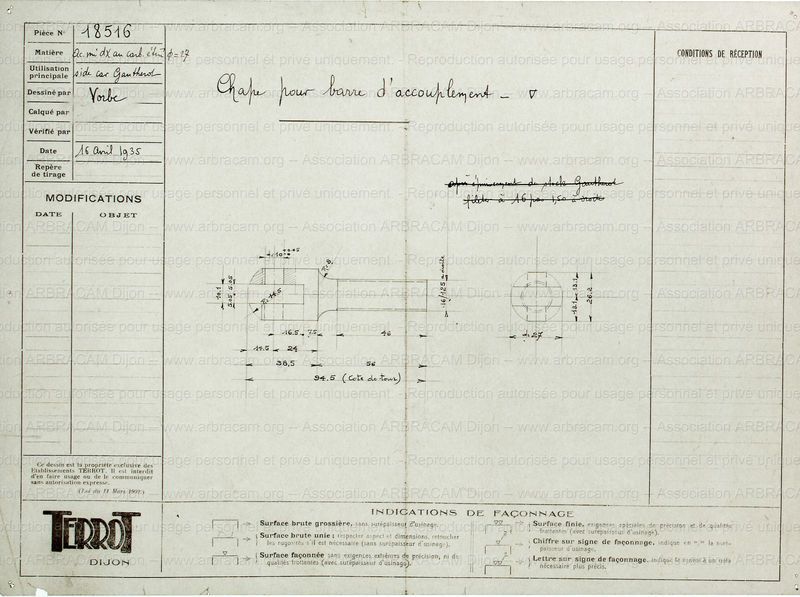 Pièce N° 18516
Matière Ac. mi dx au carb. étiré φ=27
Utilisation principale side car Gautherot
Dessiné par Vorbe
Calqué par
Vérifié par
Date 16 Avril 1935
Repère de tirage
MODIFICATIONS
DATE OBJET
Chape pour barre d'accouplement _ ▽
CONDITIONS DE RÉCEPTION
après épuisement de stock Gautherot
fileter à 16 pas 1,50 à droite
10
R=8
R=14.5
10.1
5.05 5.05
16.5 7.5 46
14.5 24
38,5 56
94.5 (Cote de tour)
16/125 à droite
13.1 13.1
26.2
27
Ce dessin est la propriété exclusive des
Etablissements TERROT. Il est interdit
d'en faire usage ou de le communiquer
sans autorisation expresse.
(Loi du 11 Mars 1902)
TERROT
DIJON
INDICATIONS DE FAÇONNAGE
Surface brute grossière, sans surépaisseur d'usinage.
Surface brute unie : respecter aspect et dimensions, retoucher
les rugosités s'il est nécessaire (sans surépaisseur d'usinage).
Surface façonnée sans exigences extrêmes de précision, ni de
qualités frottantes (avec surépaisseur d'usinage).
Surface finie, exigences spéciales de précision et de qualités
frottantes (avec surépaisseur d'usinage).
Chiffre sur signe de façonnage, indique en "/" la surépaisseur d'usinage.
Lettre sur signe de façonnage, indique le renvoi à un nota
nécessaire plus précis.
www.arbracam.org -- Association ARBRACAM Dijon -- Reproduction autorisée pour usage personnel et privé uniquement.